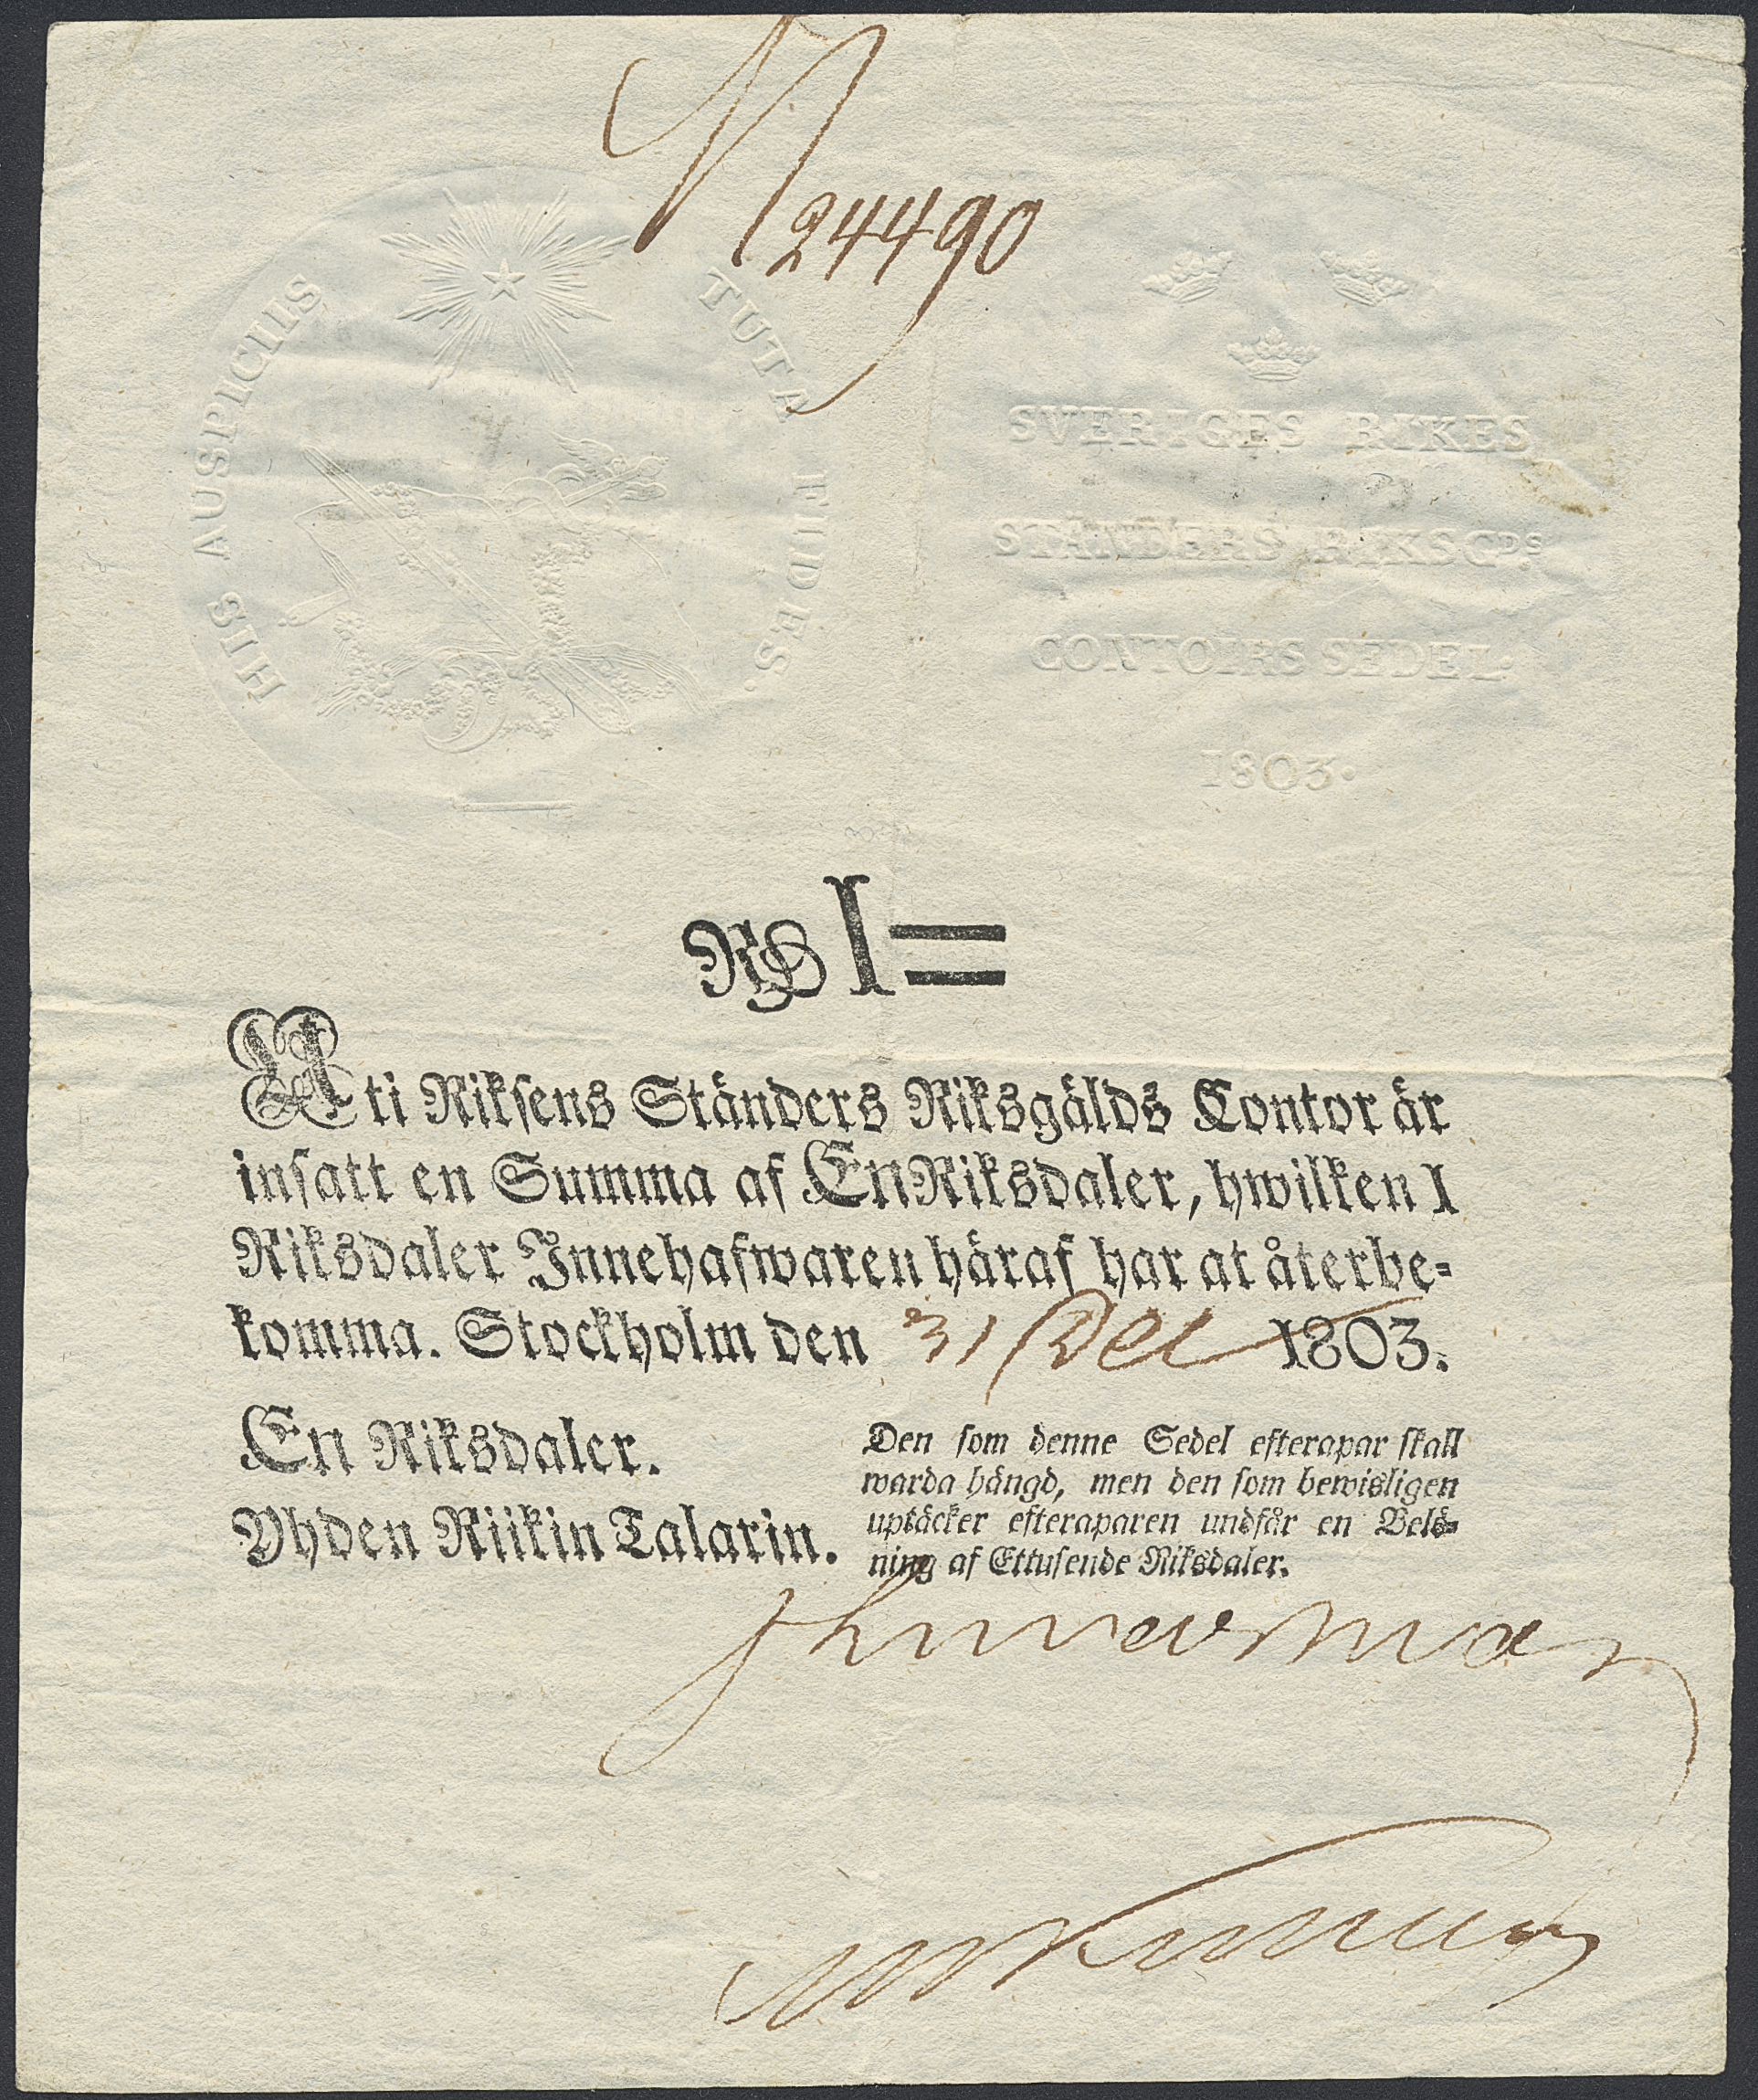 N 24490
HIS AUSPICIIS TUTA FIDES.
SVERIGES RIKES
STÄNDERS RIKSGDS
CONTOIRS SEDEL.
1803.
RD I=
Uti Riksens Ständers Riksgälds Contor är
insatt en Summa af En Riksdaler, hwilken I
Riksdaler Innehafwaren häraf har at återbe=
komma. Stockholm den 31 Dec 1803.
En Riksdaler.
Yhden Riikin Talarin.
Den som denne Sedel efterapar skall
warda hängd, men den som bewisligen
uptäcker efteraparen undfår en Belö=
ning af Ettusende Riksdaler.